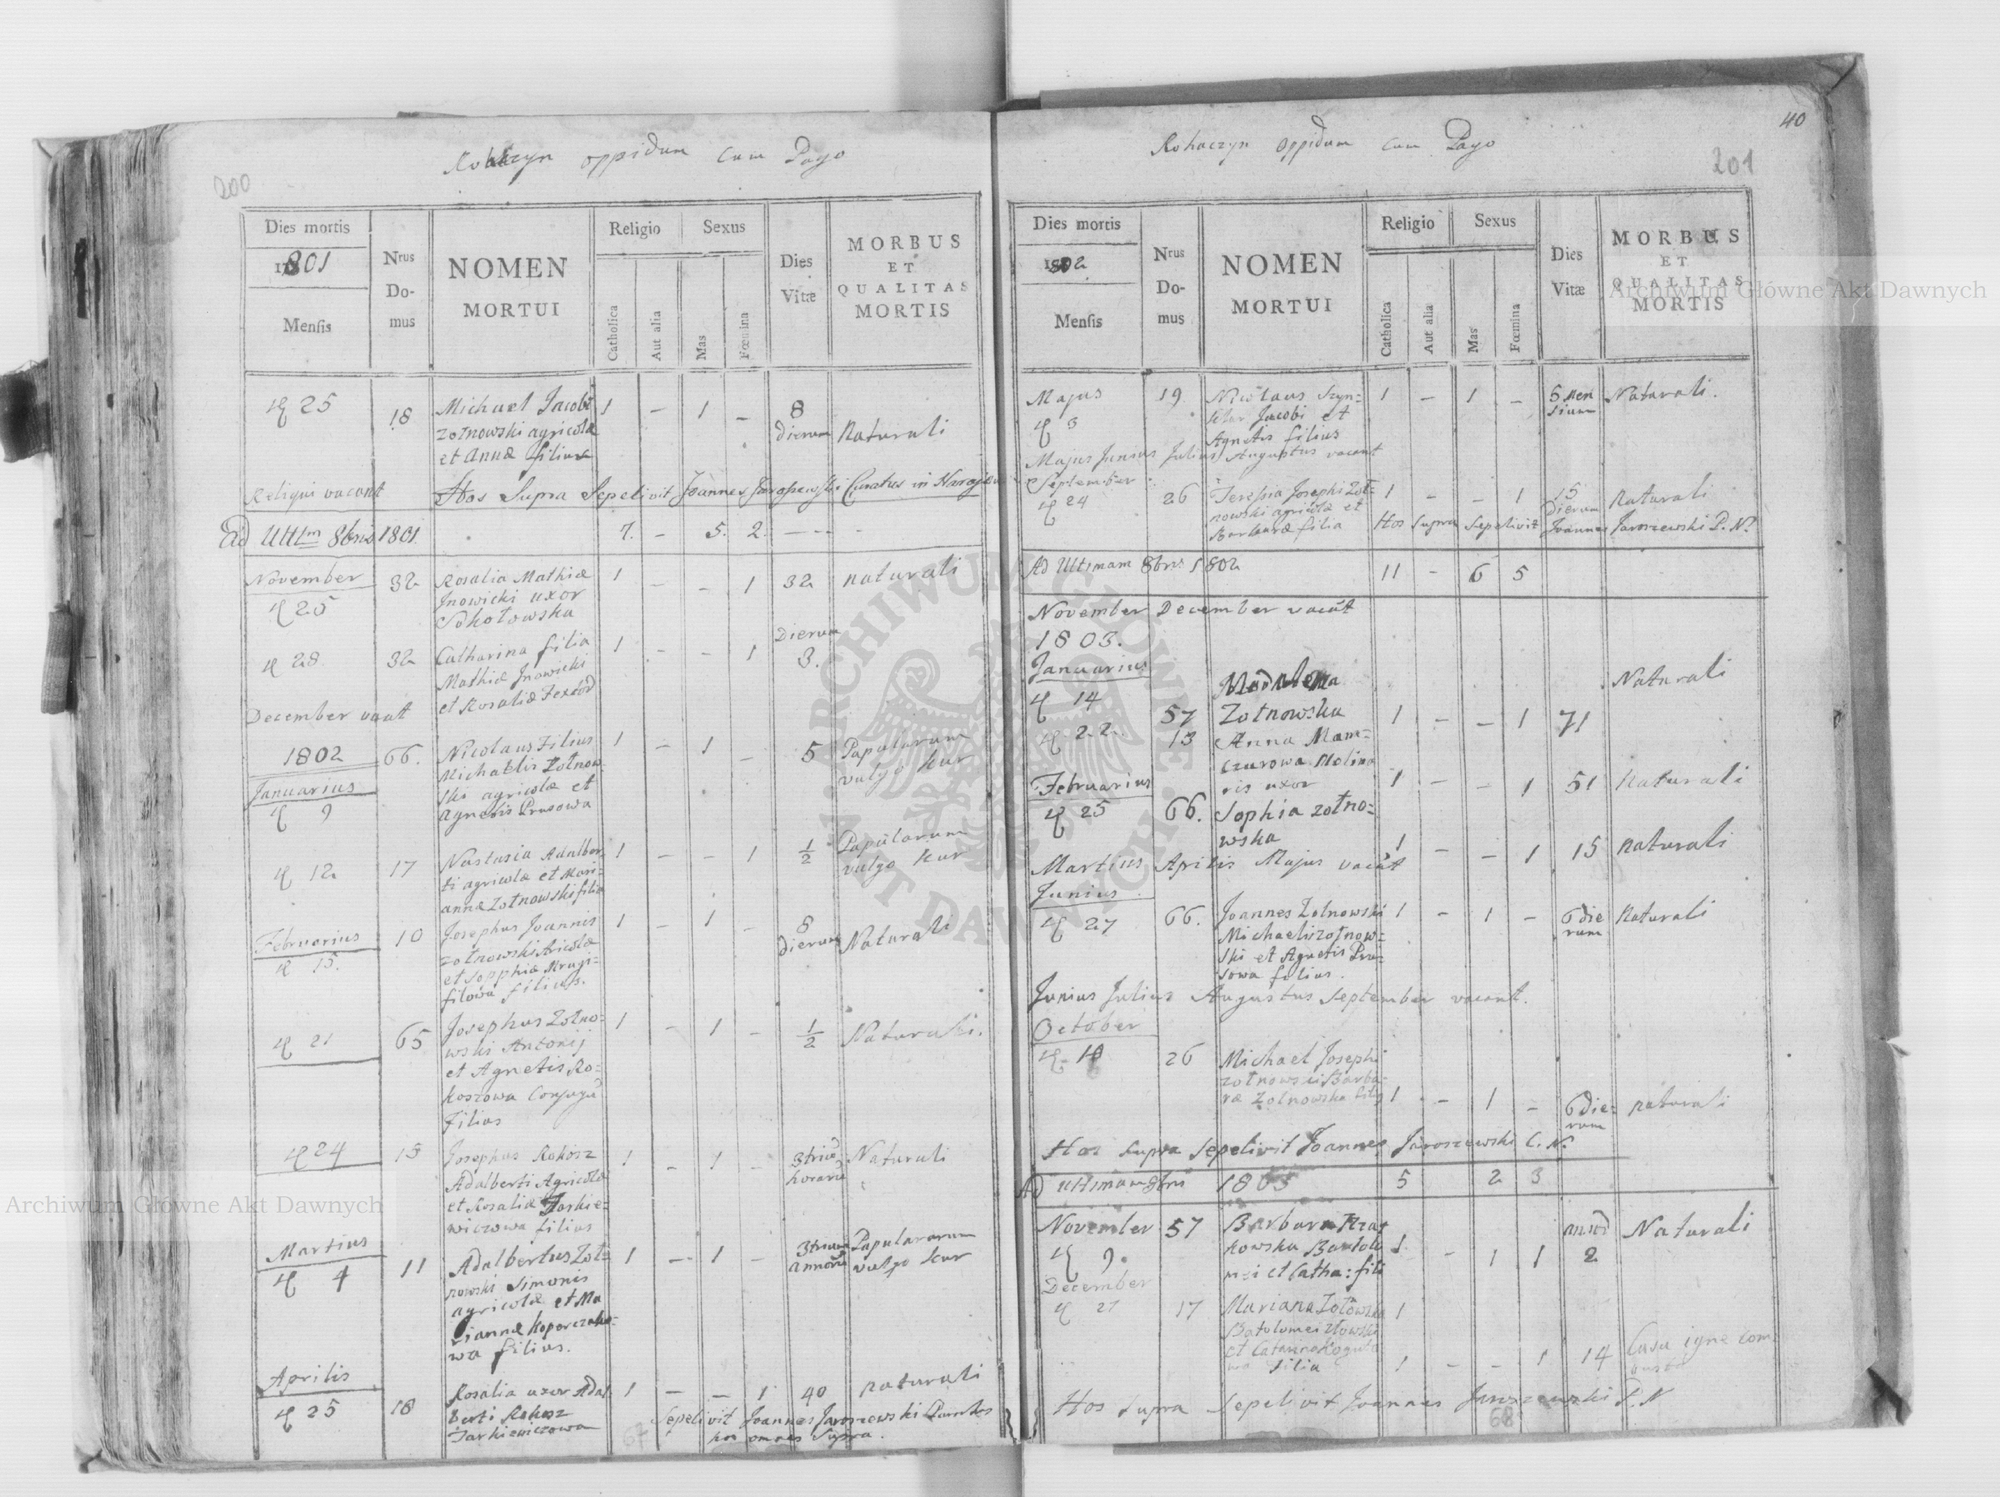 Rohaczyn oppidum cum Pago
200
Dies mortis
1801
Mensis
Nrus Domus
NOMEN
MORTUI
Religio
Sexus
Catholica
Aut alia
Mas
Fœmina
Dies
Vitæ
MORBUS
ET
QUALITAS
MORTIS
25 18 Michael Jacobi 1 – 1 – 8
Zołnowski agricolæ dierum Naturali
et Annæ filius
Reliqui vacant Hos Supra Sepelivit Joannes Jaroszewski Curatus in
Ad Ultm 8bris 1801. 7. – 5. 2. – – –
November 32 Rosalia Mathiæ 1 – – 1 32 naturali
25 Jnowicki uxor
Sokołowska
28 32 Catharina filia 1 – – 1 Dierum 3.
Mathiæ Jnowicki
et Rosaliæ
December vacat
1802 66. Nicolaus Filius 1 – 1 – 5 Papularum
Michaelis Zołnow- vulgo kur
Januarius ski agricolæ et
9 Agnetis Prusowa
12 17 Nastasia Adalber- 1 – – 1 1/2 Papularum
ti agricolæ et Mari- vulgo kur
annæ Zołnowski filia
Februarius 10 Josephus Joannis 1 – 1 – 8
15. Zołnowski dierum Naturali
et Sopphiæ
filius.
21 65 Josephus Zołno- 1 – 1 – 1/2 Naturali.
wski Antonij
et Agnetis Ro-
koszowa Conjugū
Filius
24 15 Josephus Rokosz 1 – 1 – 3 Naturali
Adalberti Agricolæ
et Rosaliæ Jarkie-
wiczowa filius
Martius
4 11 Adalbertus Zoł- 1 – 1 – 3trium Papularum
nowski Simonis annorū vulgo kur
agricolæ et Ma
riannæ Koporczako-
wa filius.
Aprilis
25 18 Rosalia uxor Adal 1 – – 1 40 naturali
berti Rokosz Sepelivit Joannes Jaroszewski Curatus
Jarkiewiczowa hos omnes Supra.
67
Rohaczyn Oppidum cum Pago
40
201
Dies mortis
1802
Mensis
Nrus Domus
NOMEN
MORTUI
Religio
Sexus
Catholica
Aut alia
Mas
Fœmina
Dies
Vitæ
MORBUS
ET
QUALITAS
MORTIS
Majus 19 Nicolaus Szyn- 1 – 1 – 5 Men Naturali.
3 Jacobi et sium
Agnetis filius
Majus Junius Julius Augustus vacant
September
24 26 Teressia Josephi Zoł- 1 – – 1 15 Naturali
nowski agricolæ et Dierum
Barbaræ filia Hos Supra Sepelivit Joannes Jaroszewski P. N.
Ad Ultimam 8bris 1802 11 – 6 5
November December vacāt
1803.
Januarius
14 57 Zołnowska 1 – – 1 71 Naturali
22 13 Anna Mam-
czurowa Molina
ris uxor 1 – – 1 51 naturali
Februarius
25 66. Sophia Zołno-
wska 1 – – 1 15 naturali
Martius Aprilis Majus vacāt
Junius
27 66. Joannes Zolnowski 1 – 1 – 6 die Naturali
Michaelis Zołnow- rum
ski et Agnetis Pru-
sowa filius.
Junius Julius Augustus September vacant.
October
26 Michael Josephi
Zołnowski Barba-
ræ Zolnowska 1 – 1 – 6 die- naturali
rum
Hos Supra Sepelivit Joannes Jaroszewski C. N.
Ad ultimam 8bris 1803 5 2 3
November 57 Barbara
9. kowska Bartolo 1 – 1 1 2 Naturali
mei et Catha: fili
December
27 17 Mariana Zołowska 1
Batolomei
et Catarina
filia 1 – – 1 14 Casu igne com
busta
Hos Supra Sepelivit Joannes Jaroszewski P. N
68
Archiwum Główne Akt Dawnych
Archiwum Główne Akt Dawnych
ARCHIWUM GŁÓWNE AKT DAWNYCH